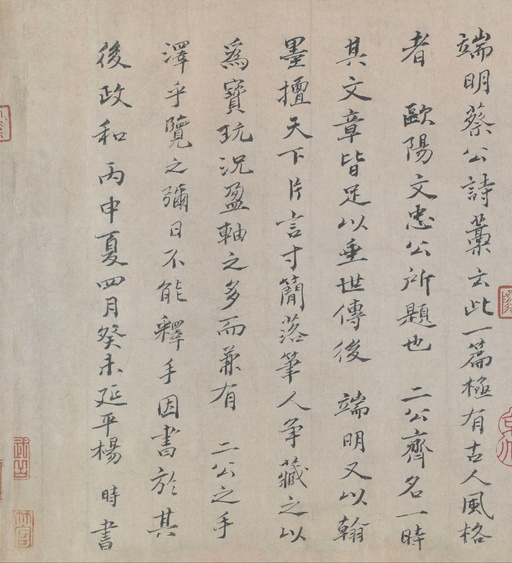 端明蔡公詩藁云此一篇極有古人風格
者 歐陽文忠公所題也 二公齊名一時
其文章皆足以垂世傳後 端明又以翰
墨擅天下片言寸簡落筆人爭藏之以
為寶玩況盈軸之多而兼有 二公之手
澤乎覽之彌日不能釋手因書於其
後政和丙申夏四月癸未延平楊 時書